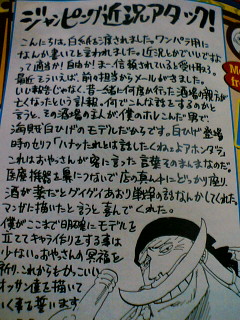 ジャンピング近況アタック!
こんにちは。白紙を渡されました。ワンパク用に
なんか書いてと言われました。近況とかでいいですよ
って適当か!自由か!まー信頼されていると受け取る。
最近そういえば、前々担当からメールがきました。
いい報告じゃなく、昔一緒に何度か行った酒場の親父が
亡くなったという訃報。何でこんな話をするのかと
言うと、その酒場の主人が僕のホレこんだ男で、
海賊王白ひげのモデルだからです。白ひげ登場
時のセリフ「ハナッたれとは話したくねェよアホンダラ」
これはおやっさんが客に言った言葉そのまんまなのだ。
医療機器を鼻につないで店の真ん中にどっかり座り、
酒が薬だとグイグイあおり戦争の話なんかしてくれた。
マンガに描いたと言うと喜んでくれた。
僕がここまで明確にモデルを
立ててキャラ作りをする事は
少ない。おやっさんの冥福を
祈り、これからもかっこいい
オッサン達を描いて
いく事を誓います